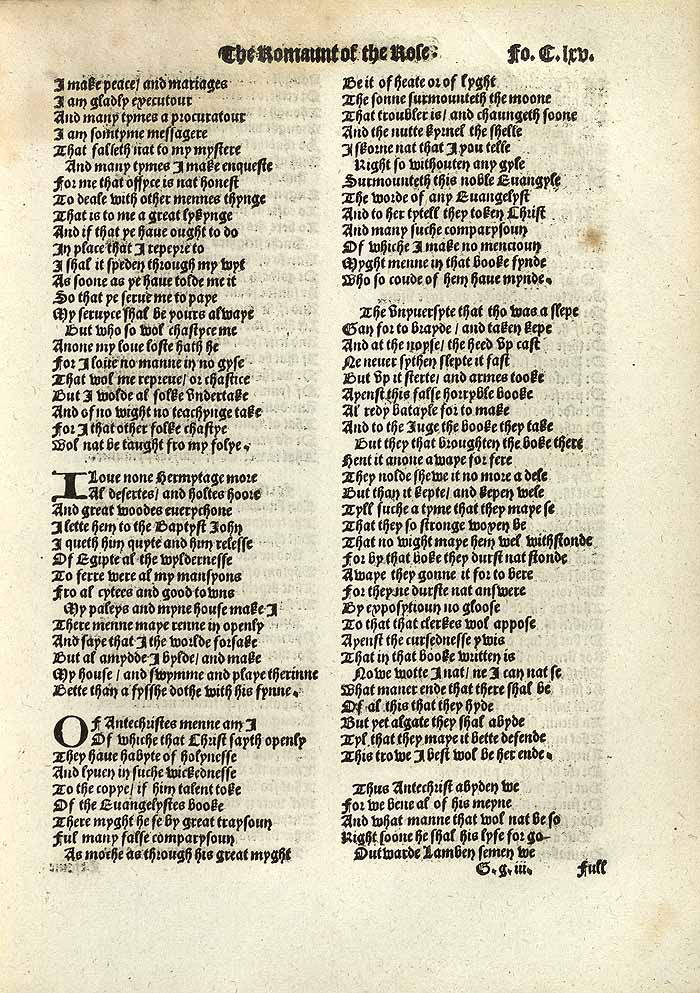 The Romaunt of the Rose.
Fo. C. lxv.
I make peace/ and mariages
I am gladly executour
And many tymes a procuratour
I am somtyme messagere
That falleth nat to my mystere
And many tymes I make enqueste
For me that offyce is nat honest
To deale with other mennes thynge
That is to me a great lykynge
And if that ye have ought to do
In place that I repeyre to
I shal it speden through my wyt
As soone as ye have tolde me it
So that ye serue me to paye
My seruyce shal be yours alwaye
But who so wol chastyce me
Anone my loue loste hath he
For I loue no manne in no gyse
That wol me repreue/ or chastice
But I wolde al folke vndertake
And of no wight no teachynge take
For I that other folke chastye
Wol nat be taught fro my folye.
I Loue none Hermytage more
Al desertes/ and holtes hoore
And great woodes euerychone
I lette hem to the Baptyst John
I queth him quyte and him relesse
Of Egipte al the wyldernesse
To ferre were al my mansyons
Fro al cytees and good towns
My paleys and myne house make I
There menne maye renne in openly
And saye that I the worlde forsake
But al amydde I bylde/ and make
My house/ and swymme and playe therinne
Bette than a fysshe dothe with his fynne.
OF Antechristes menne am I
Of whiche that Christ sayth openly
They have habyte of holynesse
And lyuen in suche wickednesse
To the coppe/ if him talent toke
Of the Euangelystes booke
There myght he se by great traysoun
Ful many false comparysoun
As moche as through his great myght
Be it of heate or of lyght
The sonne surmounteth the moone
That troubler is/ and chaungeth soone
And the nutte kyrnel the shelle
I skorne nat that I you telle
Right so withouten any gyle
Surmounteth this noble Euangyle
The worde of any Euangelyst
And to her tytell they token Christ
And many suche comparysoun
Of whiche I make no mencioun
Myght menne in that booke fynde
Who so coude of hem have mynde.
The vnyuersyte that tho was a slepe
Gan for to brayde/ and taken kepe
And at the noyse/ the heed vp cast
Ne never sythen slepte it fast
But vp it sterte/ and armes tooke
Ayenst this false horryble booke
Al redy batayle for to make
And to the Juge the booke they take
But they that broughten the boke there
Hent it anone awaye for fere
They nolde shewe it no more a dele
But than it kepte/ and kepen wele
Tyll suche a tyme that they maye se
That they so stronge woxen be
That no wight maye hem wel withstonde
For by that boke they durst nat stonde
Awaye they gonne it for to bere
For they ne durste nat answere
By exposytioun no gloose
To that that clerkes wol appose
Ayenst the cursednesse ywis
That in that booke written is
Nowe wotte I nat/ ne I can nat se
What maner ende that there shal be
Of al this that they hyde
But yet algate they shal abyde
Tyl that they maye it bette defende
This trowe I best wol be her ende.
Thus Antechrist abyden we
For we bene al of his meyne
And what manne that wol nat be so
Right soone he shal his lyfe for go
Outwarde Lamben semen we
G.g.iii.
Full